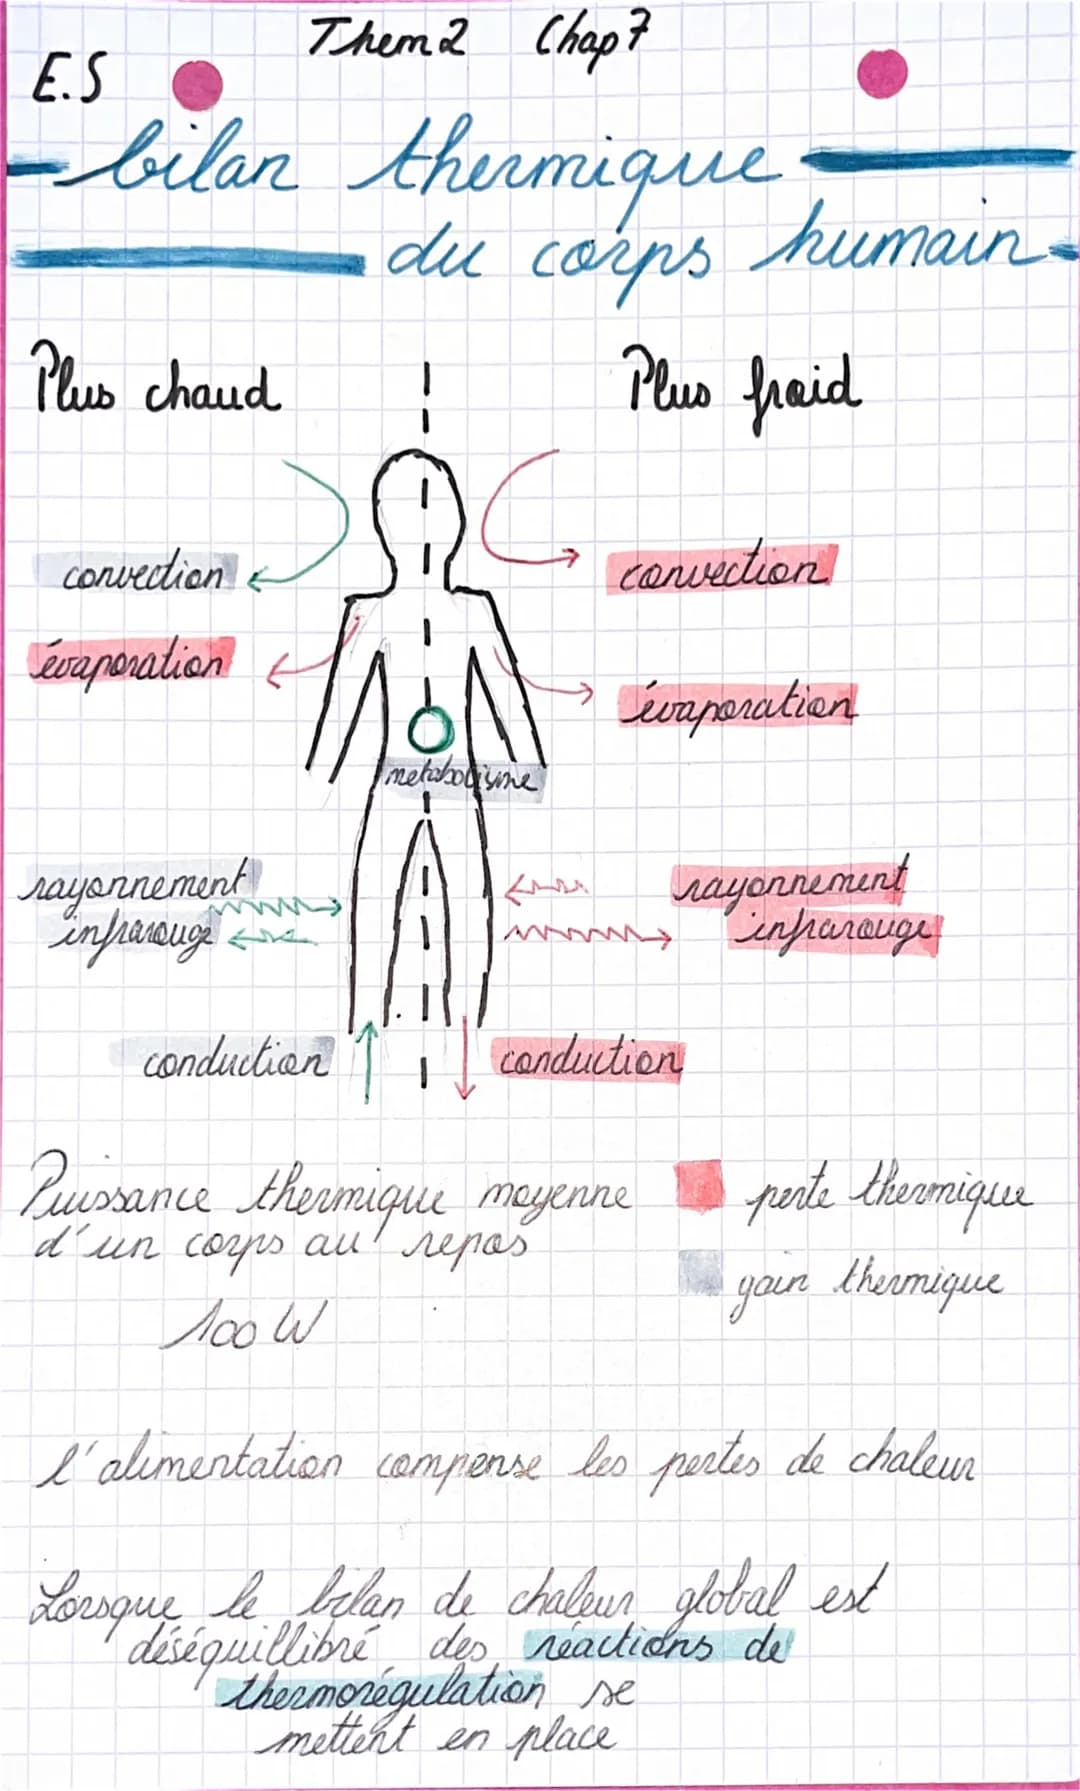 Them 2 Chap 7
E.S
bilan thermique
du corps humain
Plus chaud
Plus froid
convection
convection
évaporation
évaporation
métabolisme
rayonnement
infrarouge
rayonnement
infrarouge
conduction
conduction
Puissance thermique moyenne
d'un corps au repos
100 W
perte thermique
gain thermique
l'alimentation compense les pertes de chaleur
Lorsque le bilan de chaleur global est
déséquillibré des réactions de
thermorégulation se
mettent en place